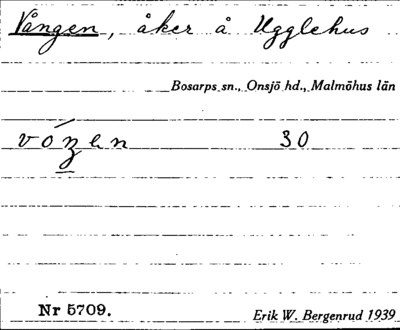 Vången, åker å Ugglehus
Bosarps sn., Onsjö hd., Malmöhus län
30
Nr 5709.
Erik W. Bergenrud 1939